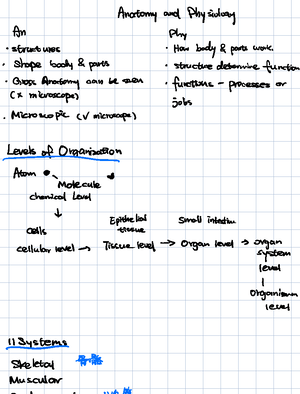 Anatomy and Physiology
An
• structures
• Shape body & parts
• Gross Anatomy can be seen
(x microscope)
• Microscopic (√ microscope)
Phy
• How body & parts work.
• structure determine function
• functions - processes or
jobs
Levels of Organization
Atom
Molecule
chemical Level
↓
Cells
cellular level →
Epithelial
tissue
Tissue level →
Small intestine
Organ level →
organ
system
level
|
organism
level
11 Systems
Skeletal
Muscular